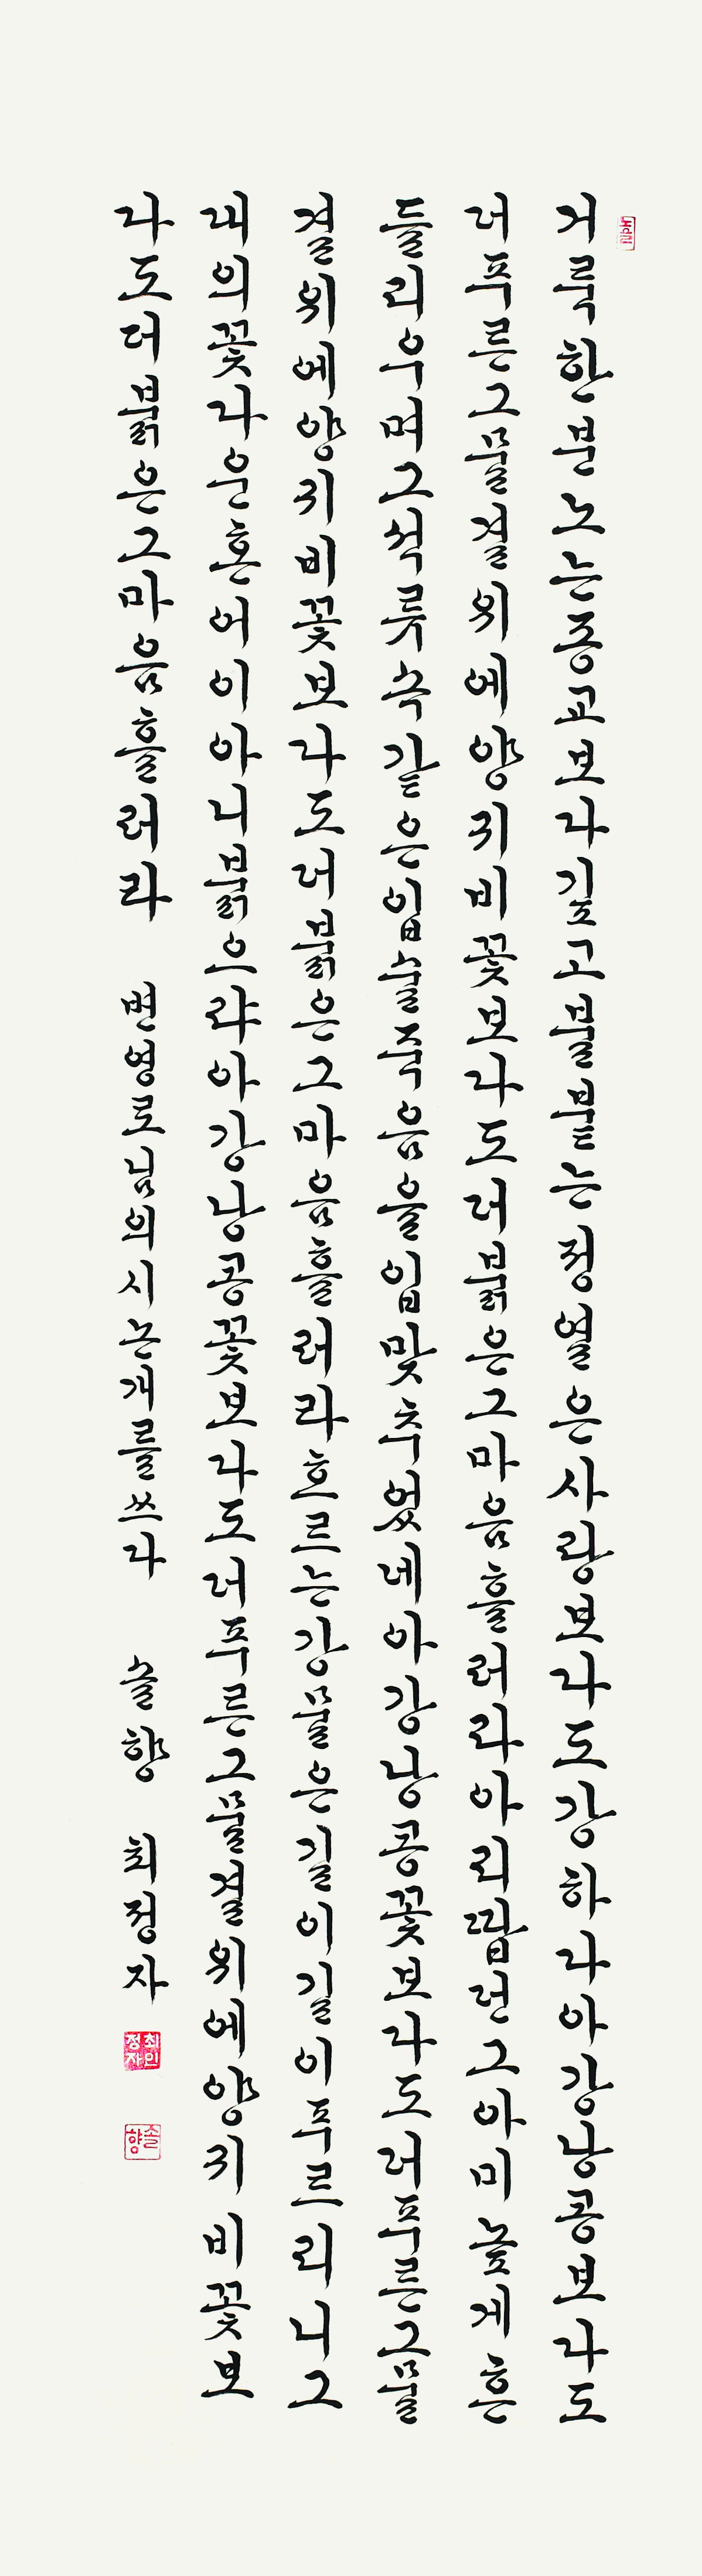 거룩한분노는종교보다깊고불붙는정열은사랑보다도강하다아강낭콩보다도
더푸른그물결위에양귀비꽃보다도더붉은그마음흘러라아리땁던그아미높게흔
들리우며그석류속같은입술죽음을입맞추었네아강낭콩꽃보다도더푸른그물
결위에양귀비꽃보다도더붉은그마음흘러라흐르는강물은길이길이푸르리니그
대의꽃다운혼어이아니붉으랴아강낭콩꽃보다도더푸른그물결위에양귀비꽃보
다도더붉은그마음흘러라 변영로님의시논개를쓰다 솔향 최정자
최인정자
솔향